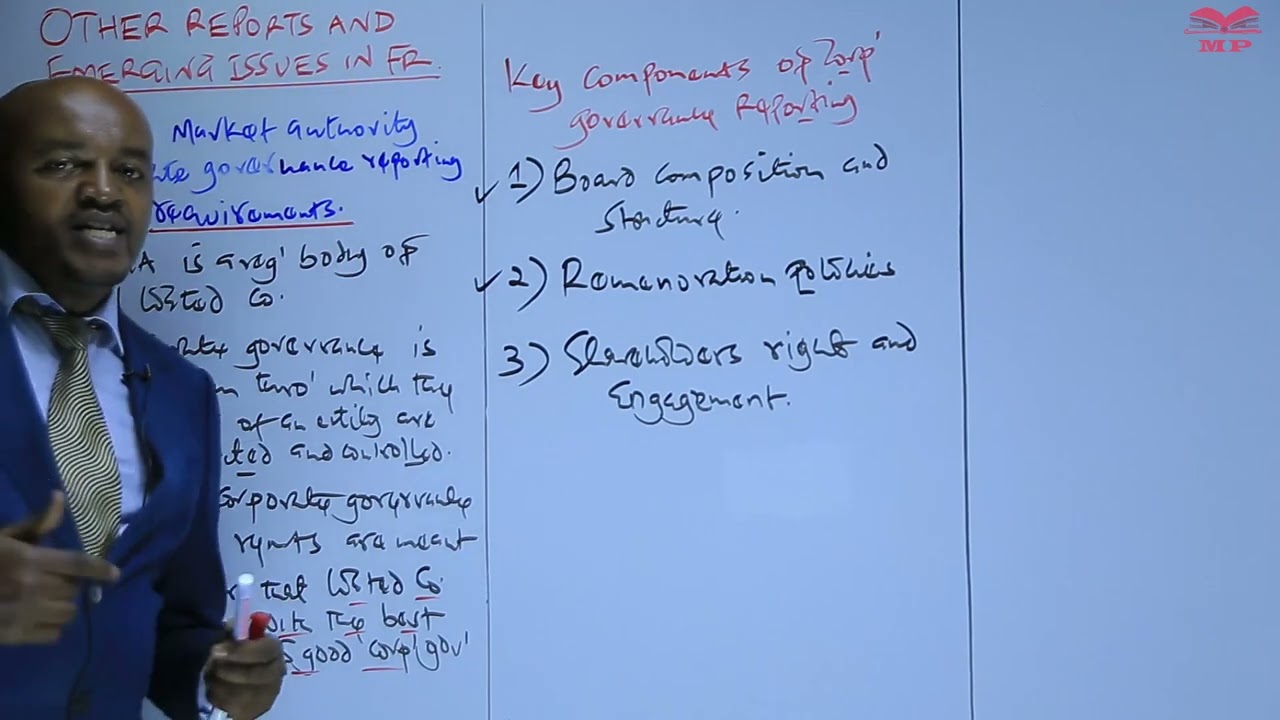 OTHER REPORTS AND
EMERGING ISSUES IN FR.
Market authority
governance reporting
requirements.
A is a reg' body of
listed Co.
governance is
thro' which the
of an entity are
ted and controlled.
Corporate governance
are meant
that listed Co.
the best
good corp' gov'
Key Components of Corp'
governance Reporting
1) Board composition and
structure.
2) Remuneration policies
3) Shareholders right and
Engagement.
MP